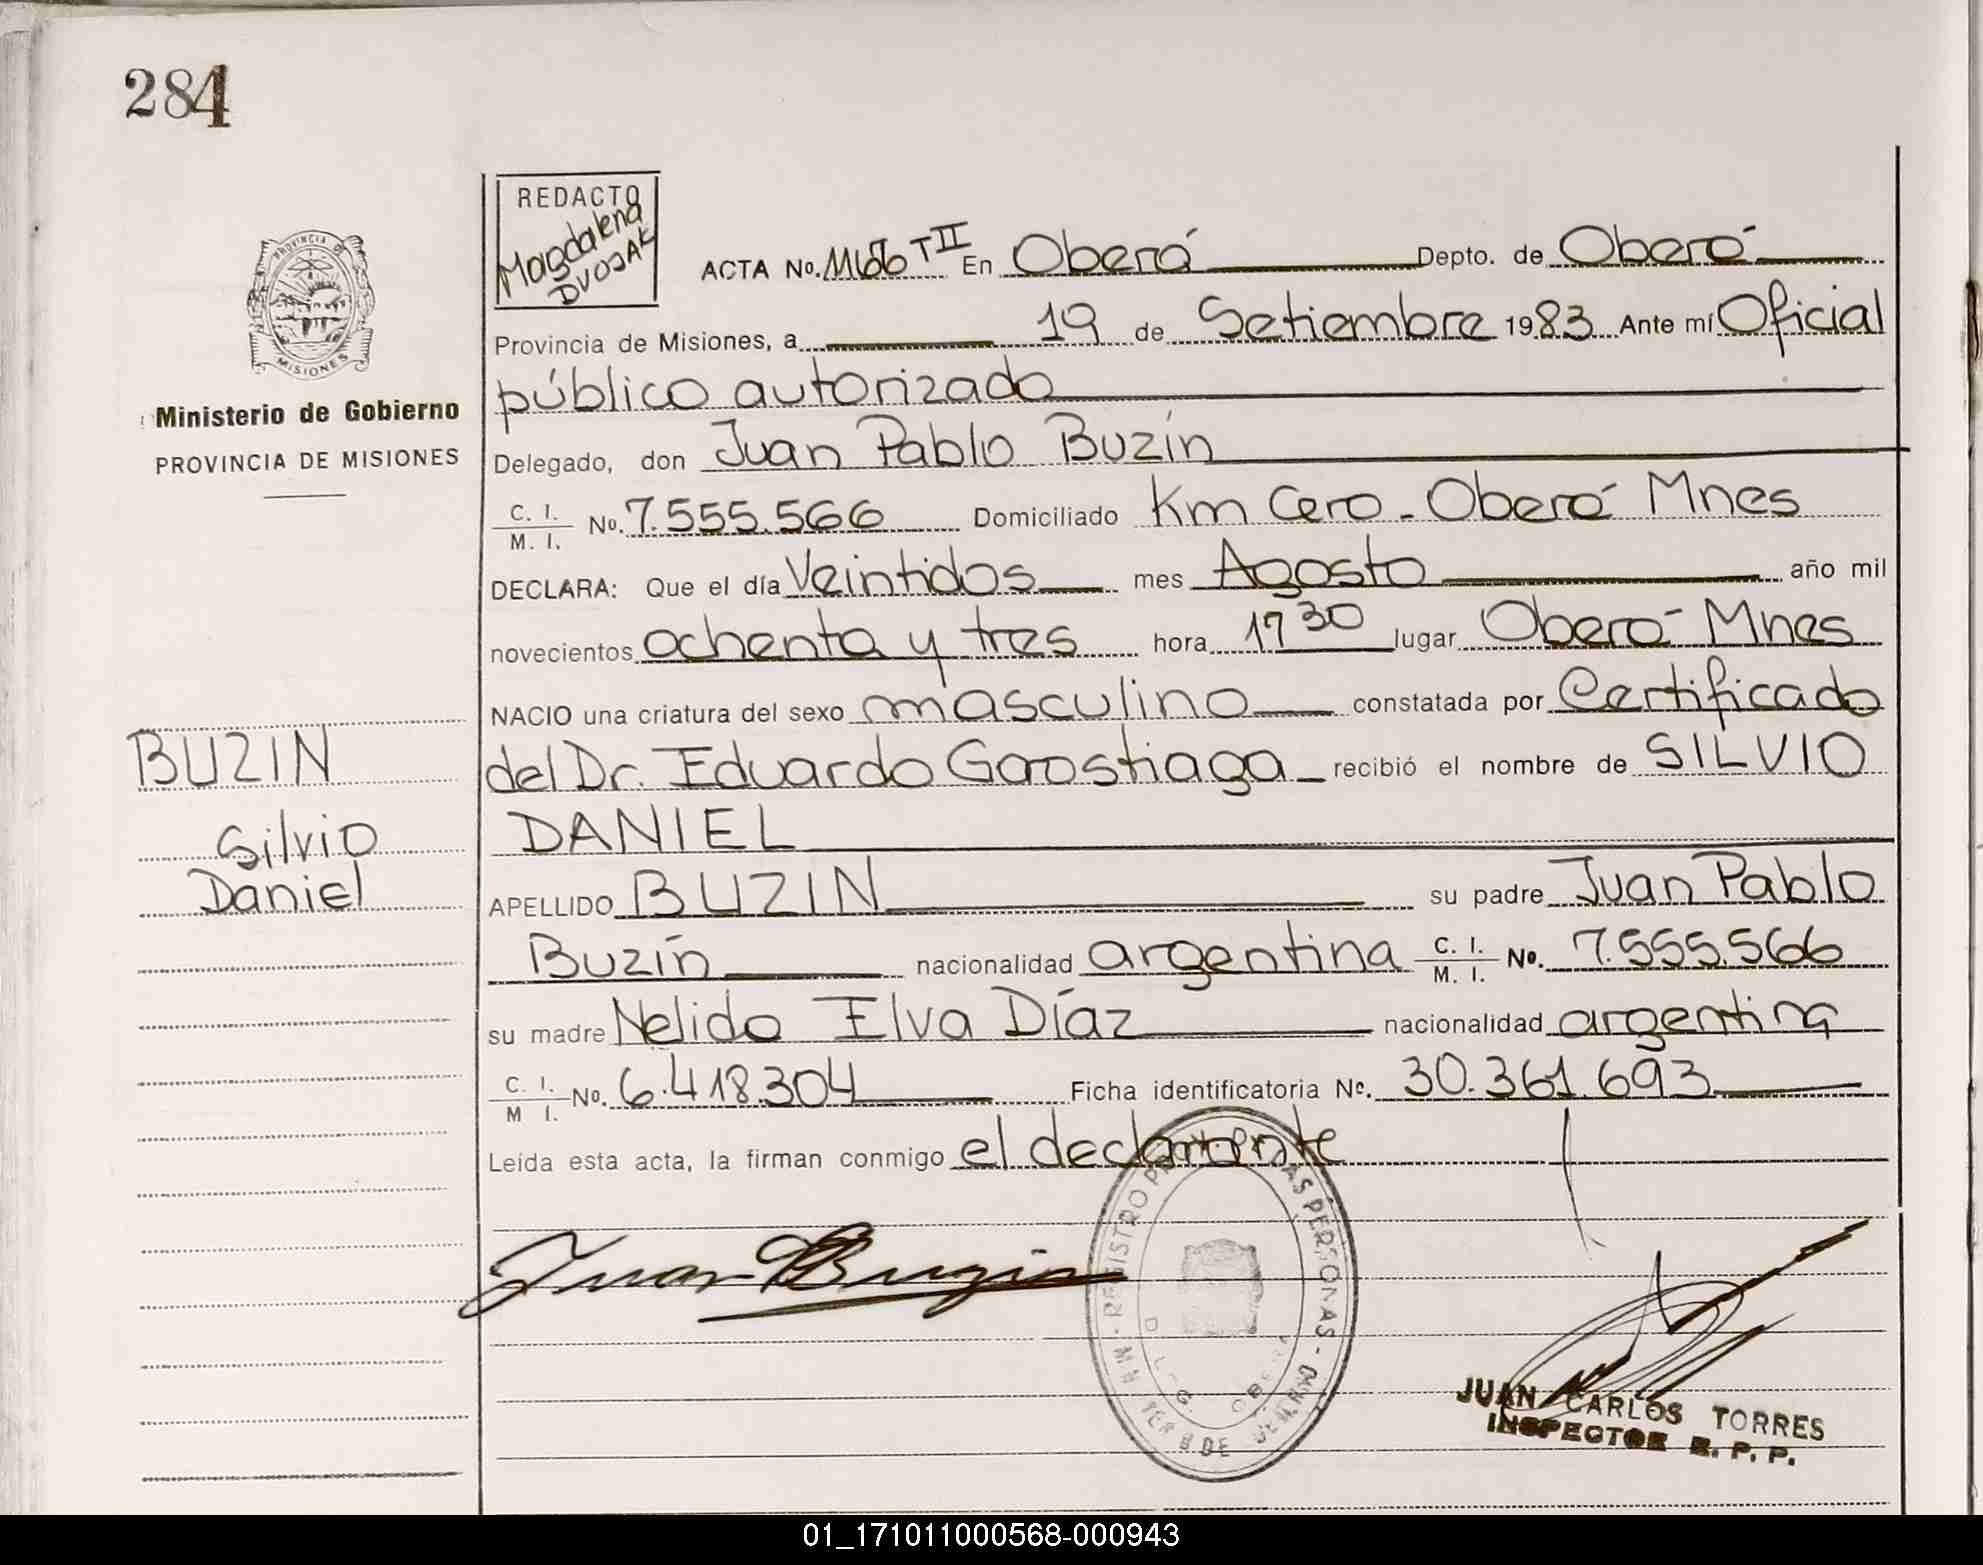 284
REDACTO
Magdalena
DVOJAK
PROVINCIA DE
MISIONES
ACTA No. T II En Oberá Depto. de Oberá
Provincia de Misiones, a 19 de Setiembre 1983 Ante mí Oficial
público autorizado
Ministerio de Gobierno
PROVINCIA DE MISIONES
Delegado, don Juan Pablo Buzín
C. I. / M. I. No. 7.555.566 Domiciliado Km Cero - Oberá Mnes
DECLARA: Que el día Veintidos mes Agosto año mil
novecientos ochenta y tres hora 17 30 lugar Oberá Mnes
NACIO una criatura del sexo masculino constatada por Certificado
BUZIN
del Dr. Eduardo Gorostiaga recibió el nombre de SILVIO
Silvio
DANIEL
Daniel
APELLIDO BUZIN su padre Juan Pablo
Buzín nacionalidad argentina C. I. / M. I. No. 7.555.566
su madre Nelida Elva Díaz nacionalidad argentina
C. I. / M I. No. 6.418.304 Ficha identificatoria No. 30.361.693
Leída esta acta, la firman conmigo el declarante
Juan Buzin
REGISTRO AS PERSONAS
JUAN CARLOS TORRES
INSPECTOR R. P. P.
01_171011000568-000943